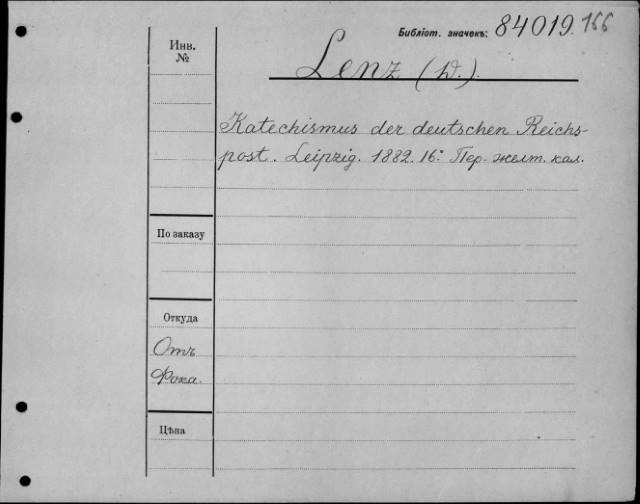 Библіот. значекъ: 84019. 166
Инв.
№
Lenz (W.).
Katechismus der deutschen Reichs-
post. Leipzig. 1882. 16.° Пер. желт. кал.
По заказу
Откуда
Отъ
Фока.
Цѣна